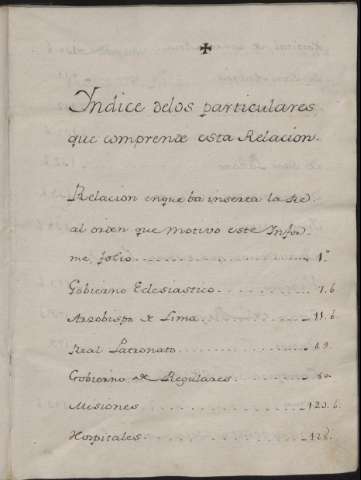 ✠
Yndice delos particulares
que comprende esta Relacion.
Relacion enque ba inserta la Re-
al orden que motivo este Infor
me, folio 1.
Gobierno Eclesiastico 7.b.
Arzobispo de Lima 11.b.
Real Patronato
Gobierno de Regulares
Misiones 123.b.
Hospitales